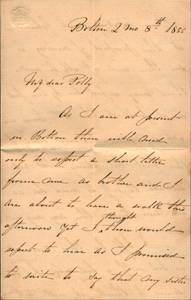 Bolton 2 mo 8th 1855
My dear Polly
As I am at present
in Bolton thou wilt
only to expect a short letter
from me as brother and I
are about to have a walk this
afternoon yet I thought thou would
expect to hear as I promised
to write to say that my sister